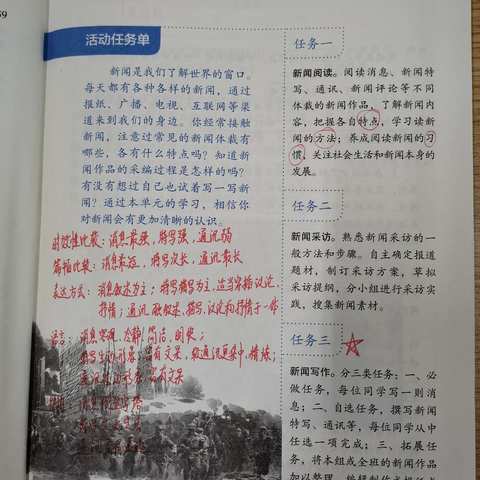 59
活动任务单
新闻是我们了解世界的窗口。
每天都有各种各样的新闻，通过
报纸、广播、电视、互联网等渠
道来到我们的身边。你经常接触
新闻，注意过常见的新闻体裁有
哪些，各有什么特点吗？知道新
闻作品的采编过程是怎样的吗？
有没有想过自己也试着写一写新
闻？通过本单元的学习，相信你
对新闻会有更加清晰的认识。
时效性比较：消息最强，特写强，通讯弱
篇幅比较：消息最短，特写次长，通讯最长
表达方式：消息叙述为主；特写描写为主，适当穿插议论、
抒情；通讯 融叙述、描写、议论和抒情于一体
语言：消息客观、冷静、简洁、明快；
特写生动形象、富有文采，较通讯更集中，精炼；
富有文采
任务一
新闻阅读。阅读消息、新闻特
写、通讯、新闻评论等不同
体裁的新闻作品，了解新闻内
容，把握各自特点，学习读新
闻的方法；养成阅读新闻的习
惯，关注社会生活和新闻本身的
发展。
任务二
新闻采访。熟悉新闻采访的一
般方法和步骤。自主确定报道
题材，制订采访方案，草拟
采访提纲，分小组进行采访实
践，搜集新闻素材。
任务三
新闻写作。分三类任务：一、必
做任务，每位同学写一则消
息；二、自选任务，撰写新闻
特写、通讯等，每位同学从中
任选一项完成；三、拓展任
务，将本组或全班的新闻作品
加以整理，编辑制作